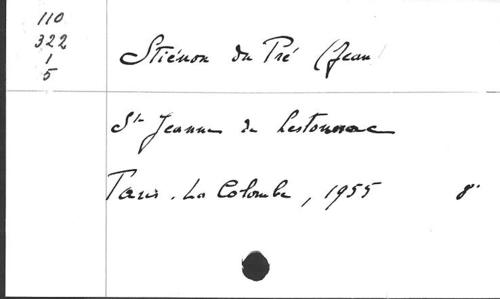 110
322
1
5
Stiénon du Pré (Jean
Ste Jeanne de Lestonnac
Paris. La Colombe, 1955 8°